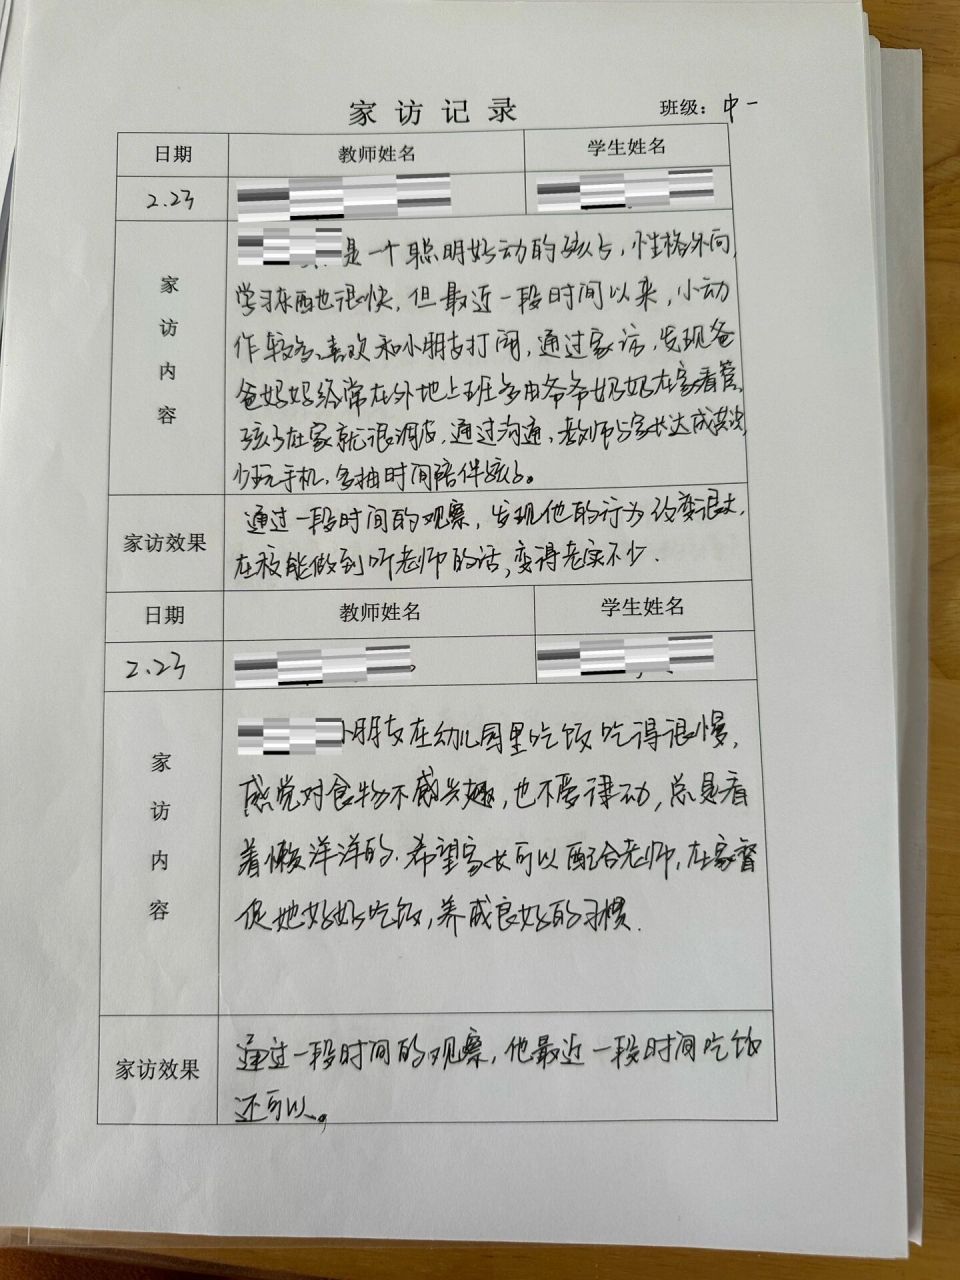 家访记录 班级：中一
日期 教师姓名 学生姓名
2.23
家访内容
是一个聪明好动的孩子，性格外向，
学习东西也很快，但最近一段时间以来，小动
作较多、喜欢和小朋友打闹，通过家访，发现爸
爸妈妈经常在外地上班多由爷爷奶奶在家看管，
孩子在家就很调皮，通过沟通，老师与家长达成共识，
少玩手机，多抽时间陪伴孩子。
家访效果
通过一段时间的观察，发现他的行为改变很大，
在校能做到听老师的话，变得老实不少．
日期 教师姓名 学生姓名
2.23
家访内容
小朋友在幼儿园里吃饭吃得很慢，
感觉对食物不感兴趣，也不爱律动，总是看
着懒洋洋的．希望家长可以配合老师，在家督
促她好好吃饭，养成良好的习惯．
家访效果
通过一段时间的观察，他最近一段时间吃饭
还可以。